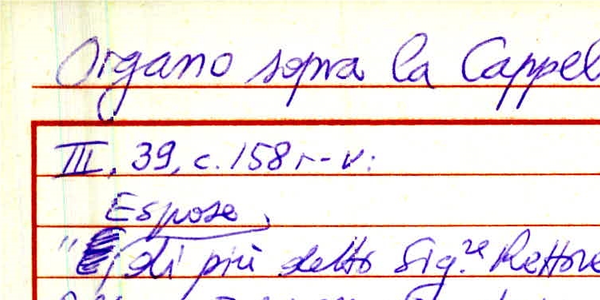 Organo sopra la Cappel
III, 39, c. 158 r - v:
Espose,
"di più detto Sig.re Rettore